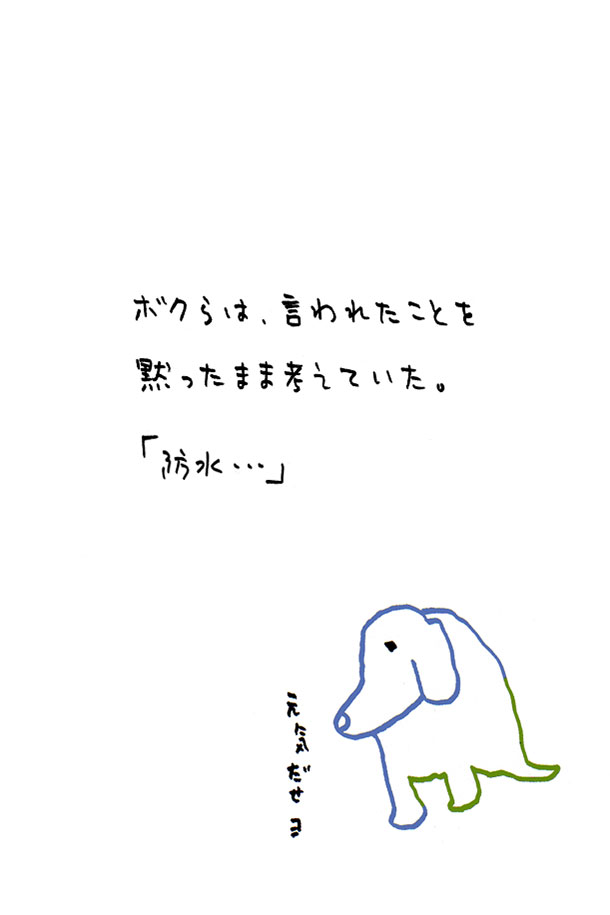 ボクらは、言われたことを
黙ったまま考えていた。
「防水…」
元気だせヨ